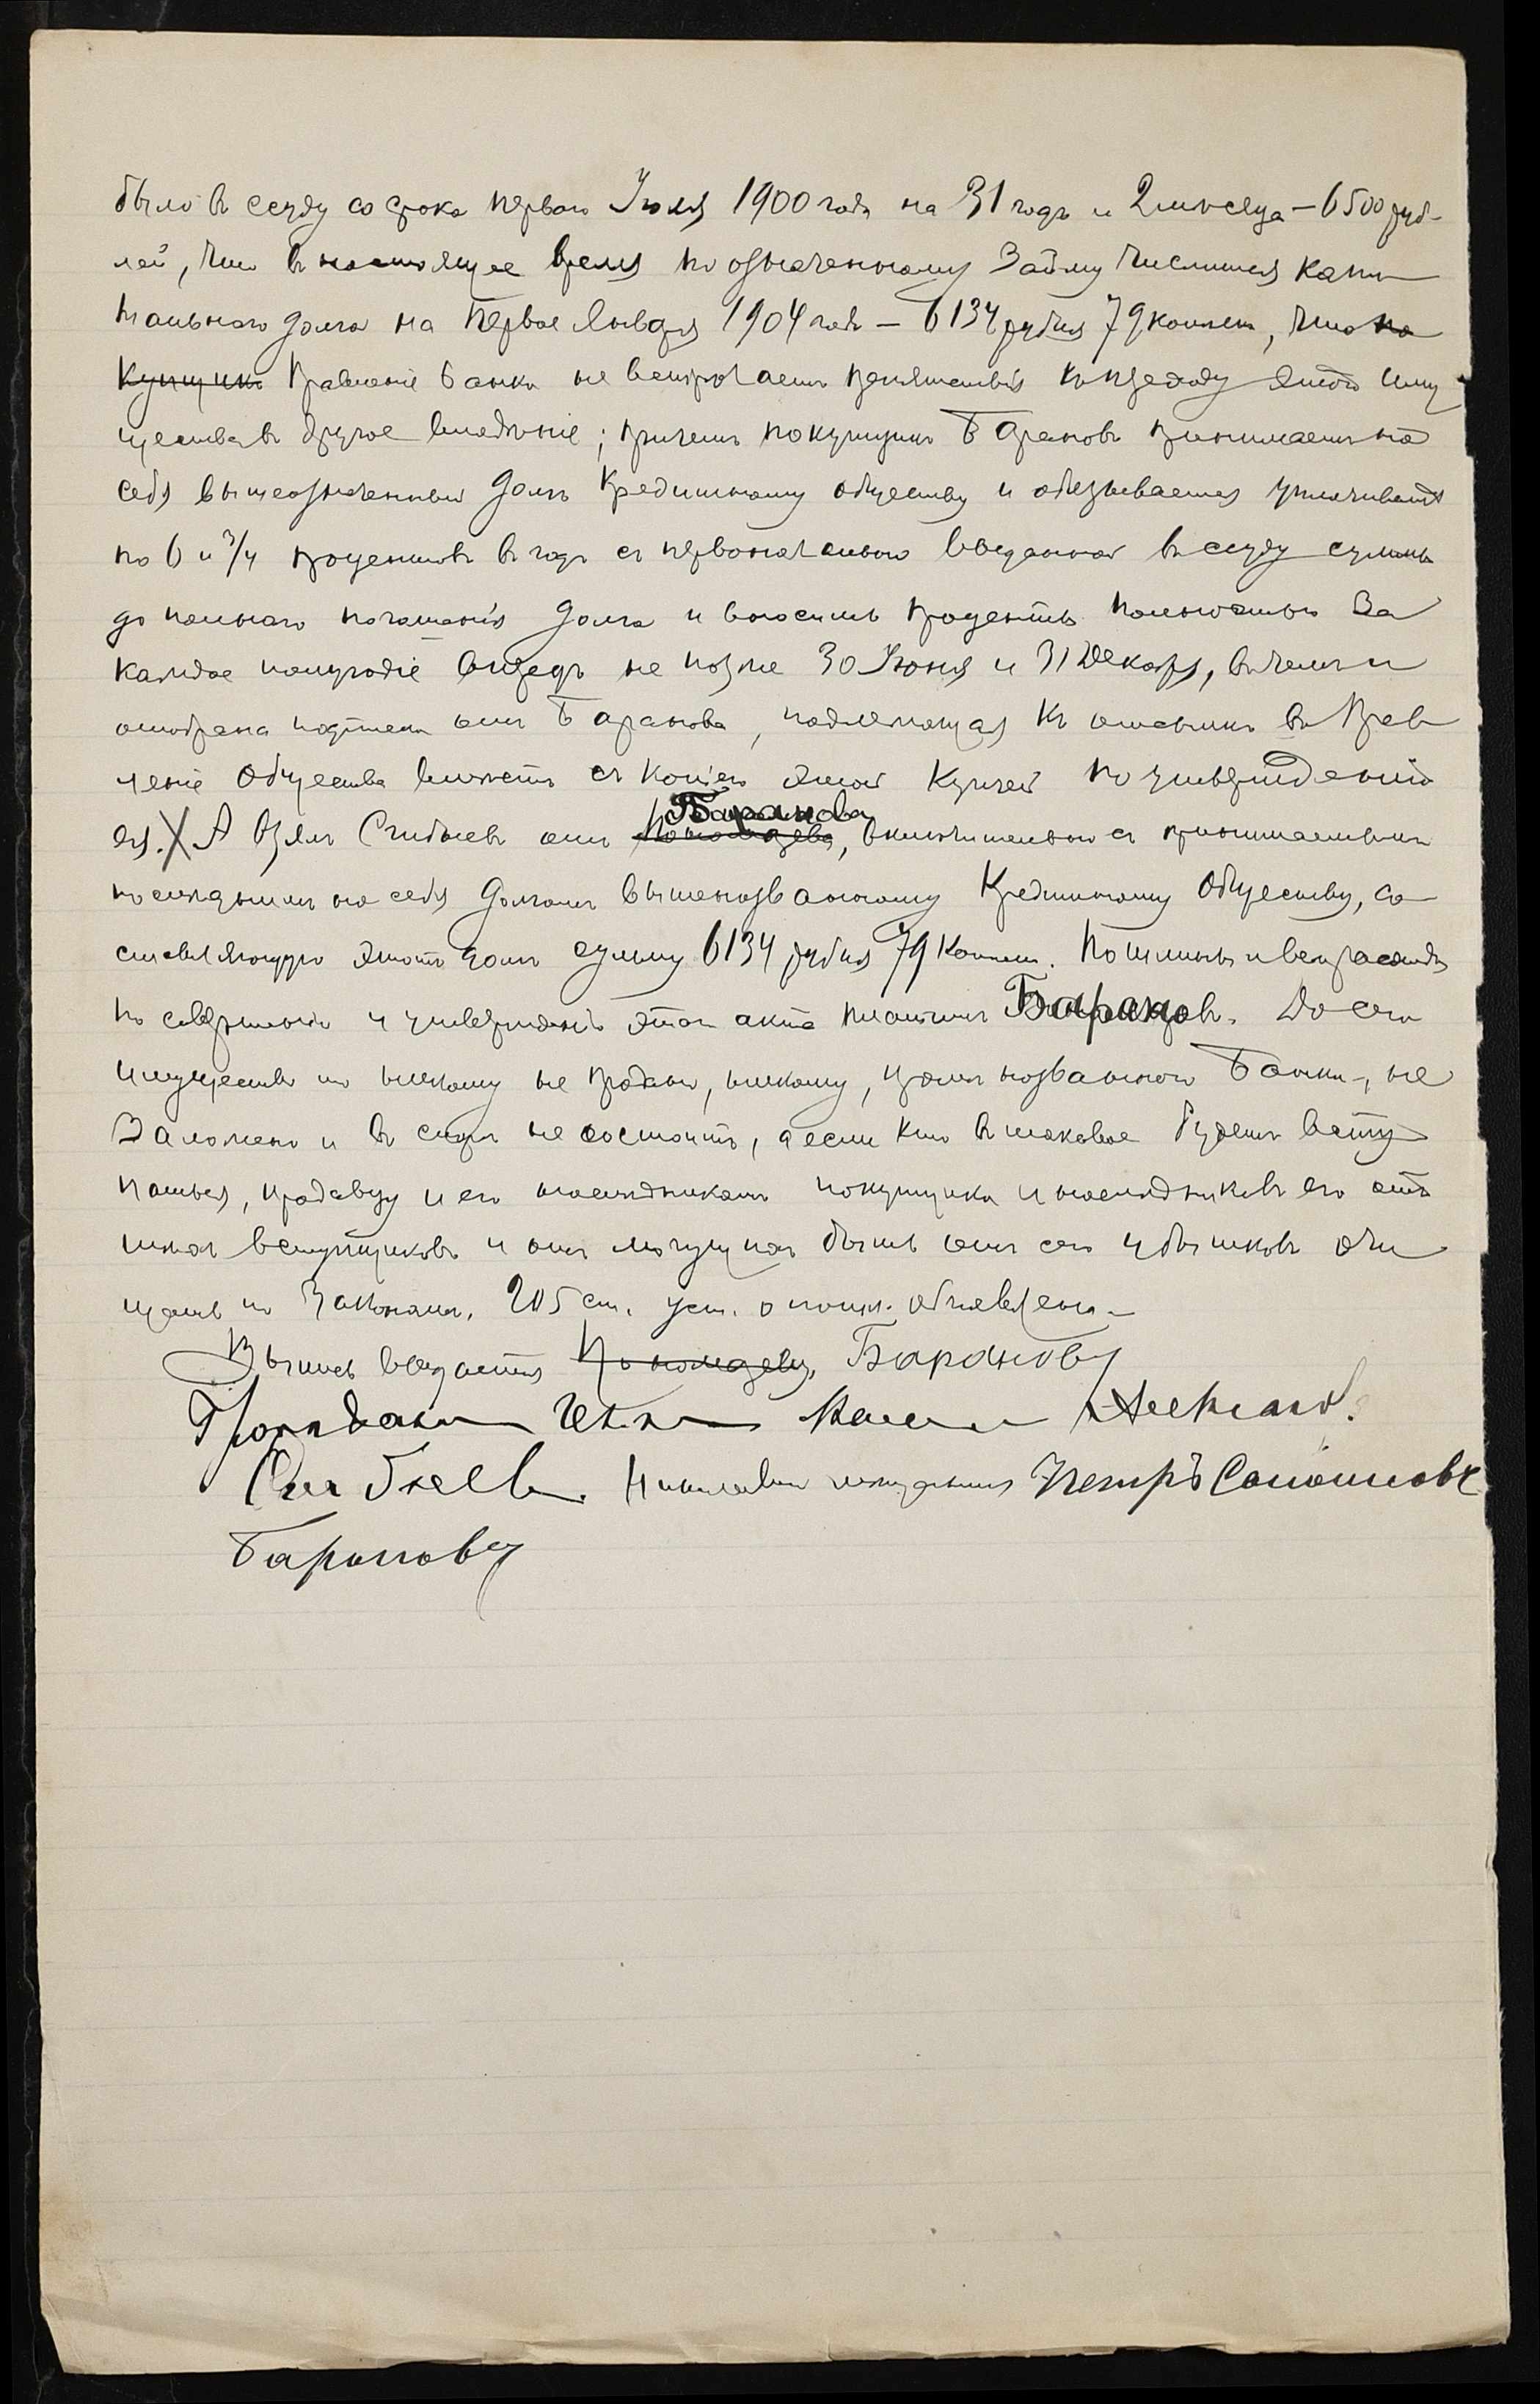 было въ ссуду со срока перваго Июля 1900 года на 31 годъ и 2 месяца – 6500 руб-
лей, что въ настоящее время по означенному займу числится капи
тальнаго долга на первое Января 1904 года – 6134 рубля 79 копеек, что по
купщикъ Правленіе банка не встречаетъ препятствія къ переходу этого иму
щества въ другое владѣніе; причемъ покупщикъ Барановъ принимаетъ на
себя вышеозначенный долгъ Кредитному обществу и обязывается уплачивать
по 6 и 3/4 процентовъ въ годъ съ первоначально выданной въ ссуду суммы
до полнаго погашенія долга и вносить проценты полностью за
каждое полугодіе впередъ не позже 30 Июня и 31 Декабря, въ чемъ и
отобрана подписка отъ Баранова, подлежащая къ отсылкѣ въ Прав
леніе Общества вместѣ съ копіею этой купчей по утвержденіи
ея. А взялъ Сибаевъ отъ Пономарева Баранова, включительно съ принимаемымъ
последнимъ на себя долгомъ вышеназванному Кредитному Обществу, со
ставляющую этотъ долгъ сумму 6134 рубля 79 копеек. Пошлины и все расходы
по совершенію и утвержденію этого акта платитъ Барановъ. До сего
имущество то никому не продано, никому, кроме названного Банка, не
заложено и въ споре не состоитъ, а если кто въ таковое будетъ всту
паться, продавцу и его наследникамъ покупщика и наследниковъ его отъ
техъ вступщиковъ и отъ могущихъ быть отъ сего убытковъ очи
щать по законамъ. 205 ст. уст. о пошл. объявлена.
Выпись выдается Пономареву, Баранову
Гражданинъ Алексан
Сибаевъ. Петръ
Баранову